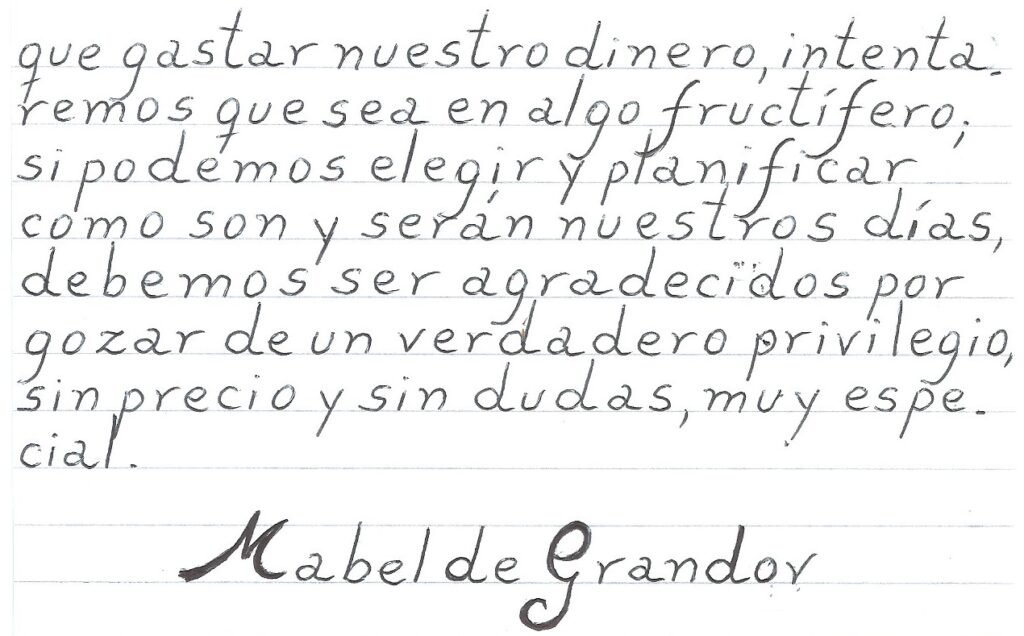 que gastar nuestro dinero, intenta-
remos que sea en algo fructífero;
si podemos elegir y planificar
como son y serán nuestros días,
debemos ser agradecidos por
gozar de un verdadero privilegio,
sin precio y sin dudas, muy espe-
cial.
Mabel de Grandov